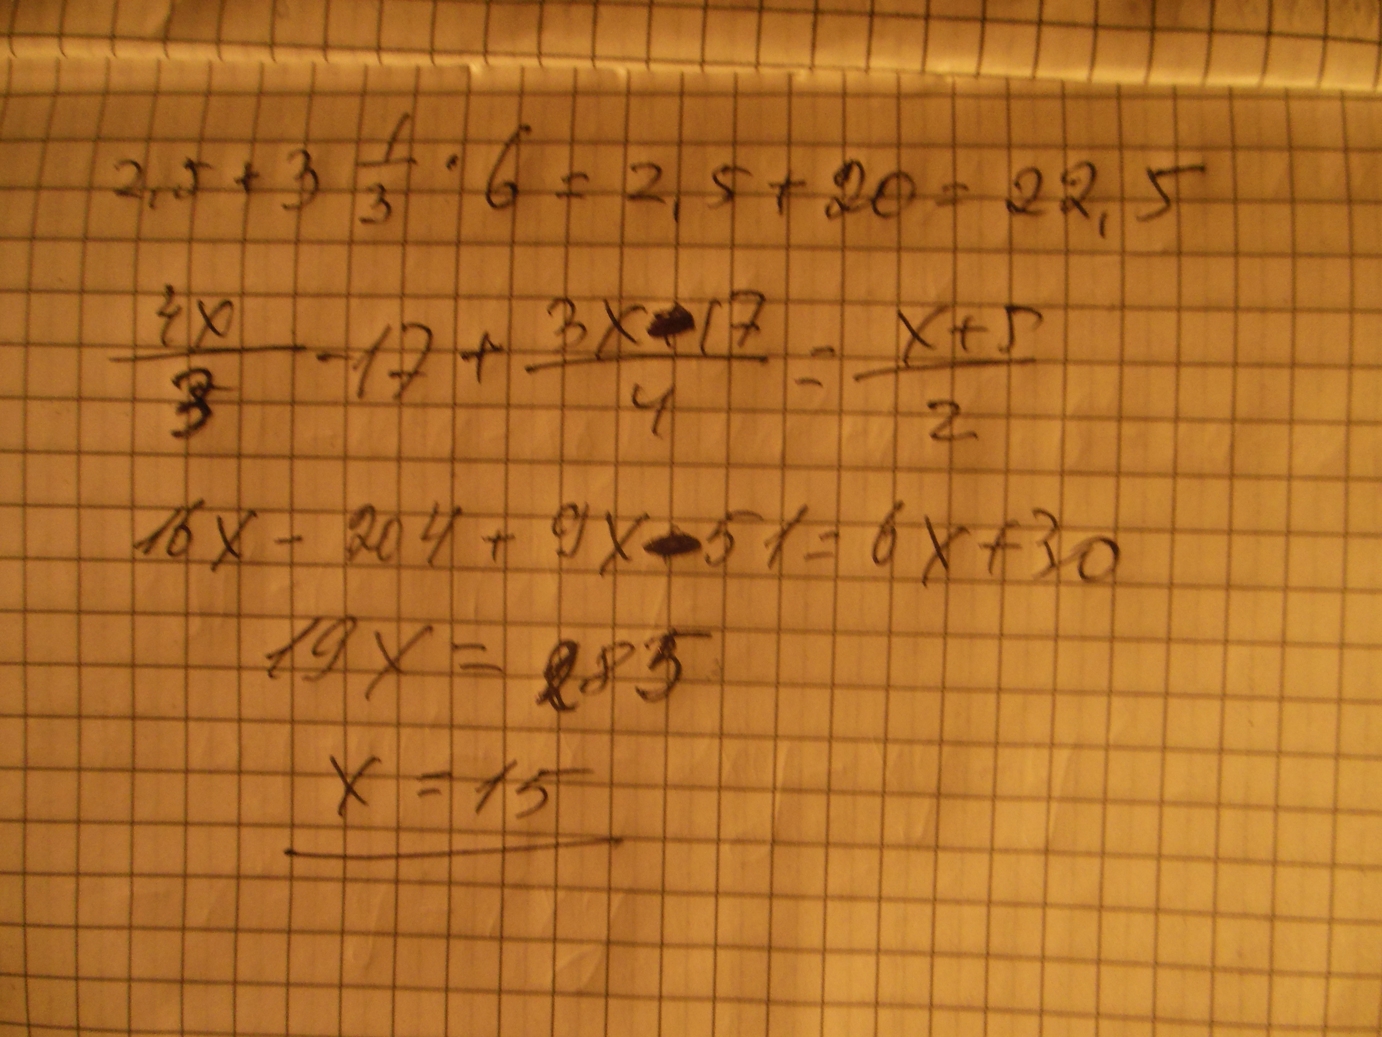 2,5 + 3 1/3 · 6 = 2,5 + 20 = 22,5
4x/3 - 17 + 3x - 17/4 = x + 5/2
16x - 204 + 9x - 51 = 6x + 30
19x = 285
x = 15